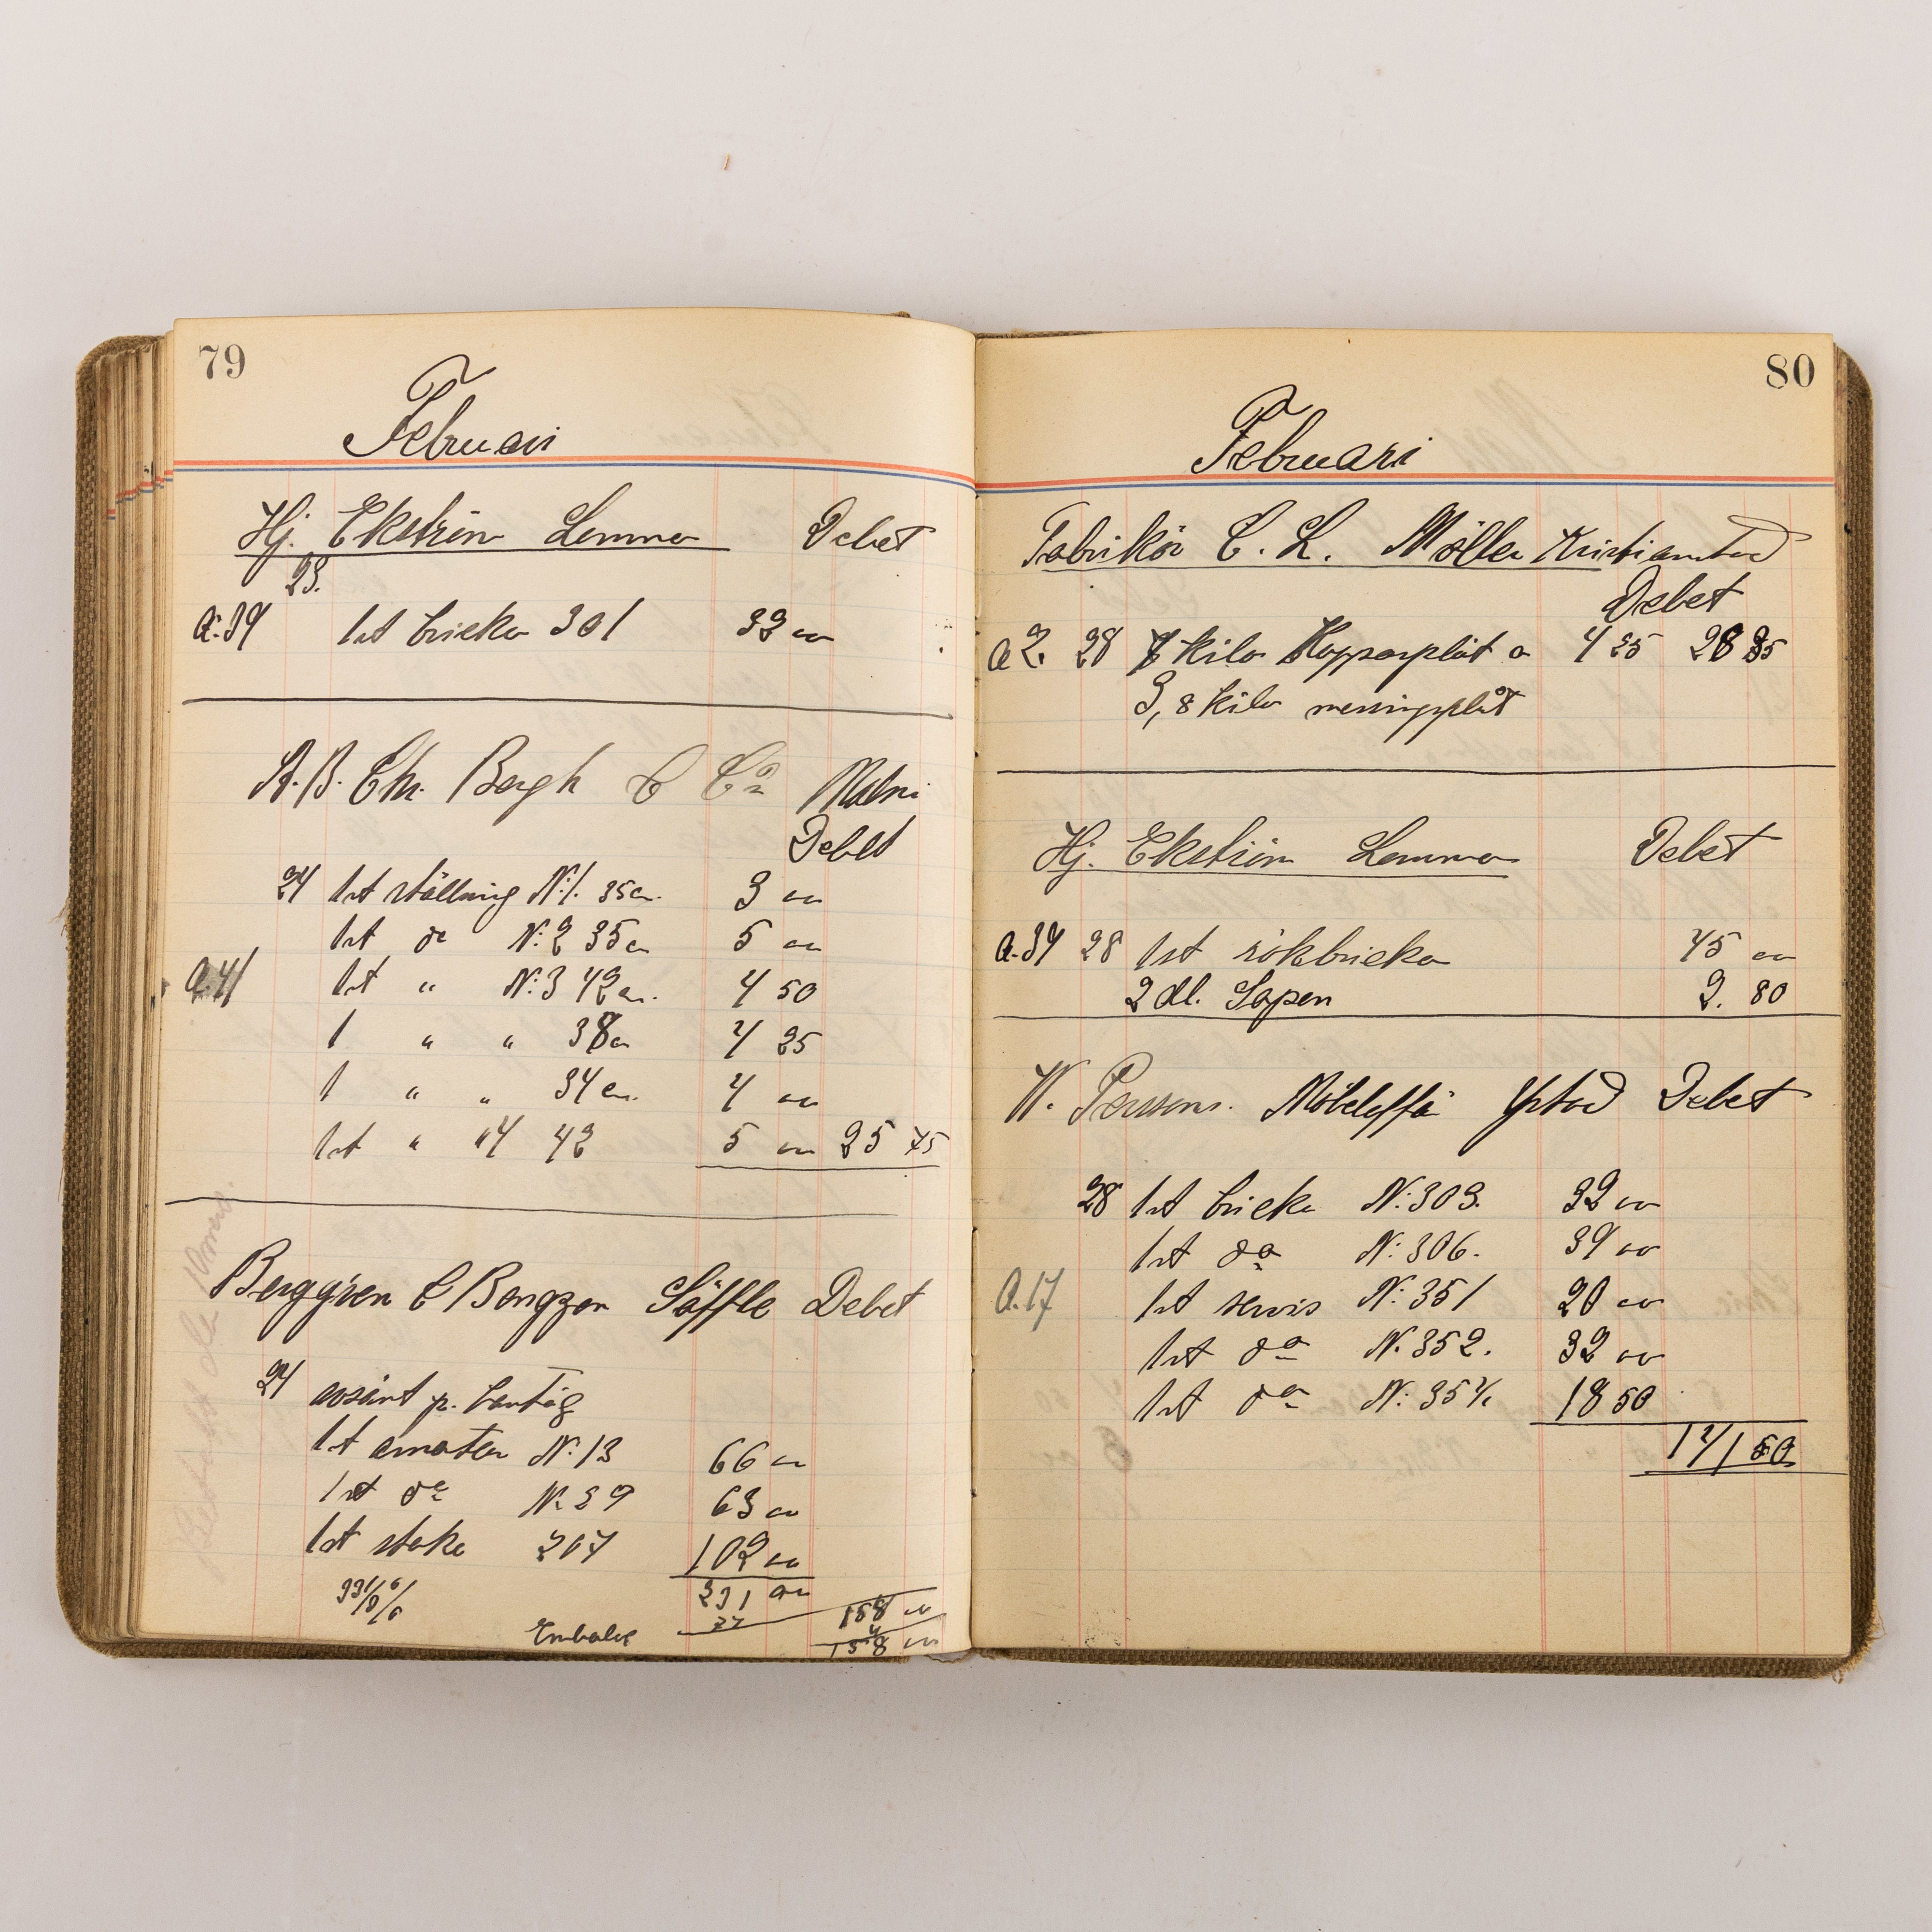 79
Februari
Hj. Ekström Lomma Debet
23.
A.34 1st bricka 301 33 00
A.B. Chr. Bergh & Co Malmö
Debet
24 1st ställning N:1. 35 cm. 3 00
1st do N:2 35 cm 5 00
A.41 1st " N:3 42 cm. 4 50
1 " " 38 cm 4 25
1 " " 34 cm. 4 00
1st " "4 42 5 00 25 75
Berggren & Bengzon Säffle Debet
24 avsänt p.
1st N:13 66 00
1st do N:39 63 00
1st stake 207 102 00
33 1/3 % 231 00
77 158 00
Embalage 4
158 00
80
Februari
Fabrikör C. L. Möller Kristianstad
Debet
A 2. 28 7 kilo Kopparplåt a 4 25
3,8 kilo messingplåt
Hj. Ekström Lomma Debet
A.34 28 1st rökbricka 45 00
2 dl. Sapen 2. 80
W. Perssons. Möbelaffä Ystad Debet
28 1st bricka N:303. 32 00
1st do N:306. 39 00
A.17 1st servis N:351 20 00
1st do N.352. 32 00
1st do N:354. 18 50
141 50